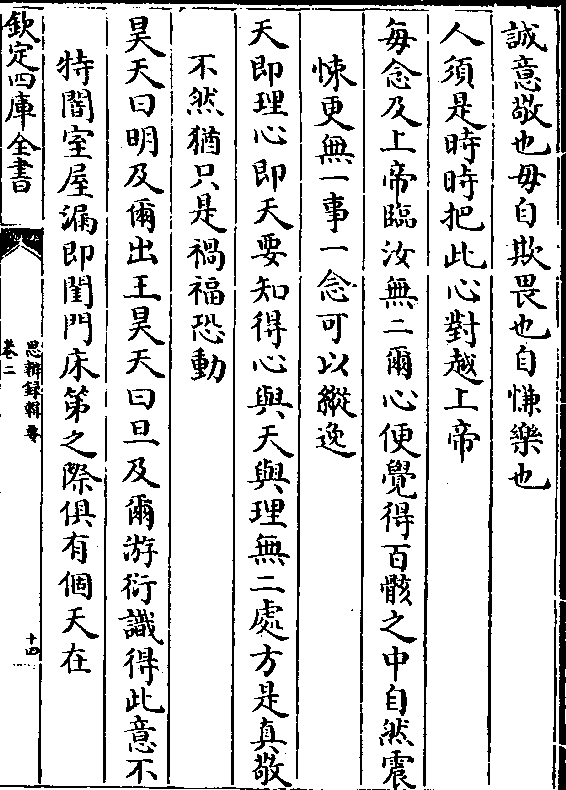 誠意敬也毋自欺畏也自慊樂也
人須是時時把此心對越上帝
每念及上帝臨汝無二爾心便覺得百骸之中自然震
悚更無一事一念可以縱逸
天即理心即天要知得心與天與理無二處方是真敬
不然猶只是禍福恐動
昊天曰明及爾出王昊天曰旦及爾游衍識得此意不
特闇室屋漏即閨門床第之際俱有個天在
欽定四庫全書
思辨録輯要
卷二
十四